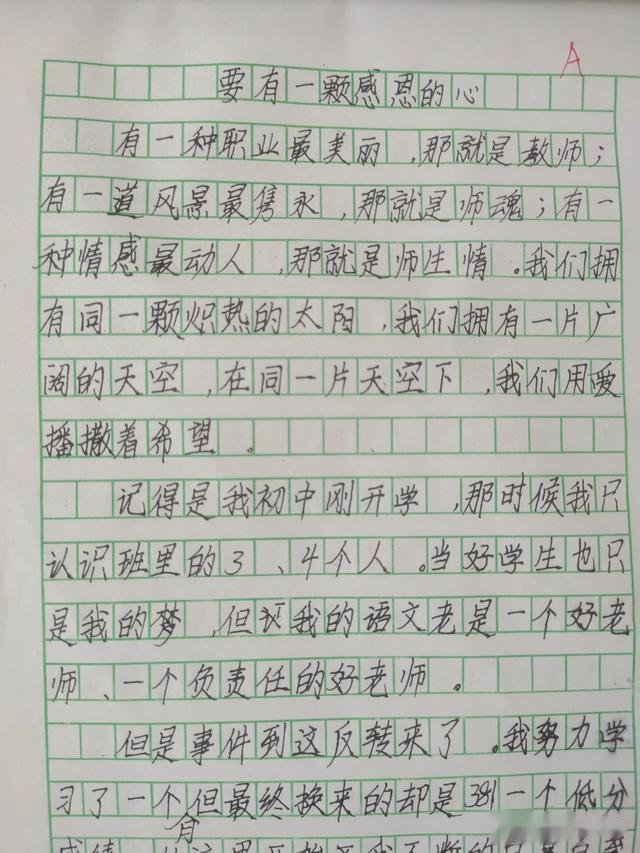 A
要有一颗感恩的心
有一种职业最美丽,那就是教师;
有一道风景最隽永,那就是师魂;有一
种情感最动人,那就是师生情。我们拥
有同一颗炽热的太阳,我们拥有一片广
阔的天空,在同一片天空下,我们用爱
播撒着希望。
记得是我初中刚开学,那时候我只
认识班里的3、4个人。当好学生也只
是我的梦,但我的语文老是一个好老
师、一个负责任的好老师。
但是事件到这反转来了。我努力学
习了一个月但最终换来的却是381一个低分
成绩